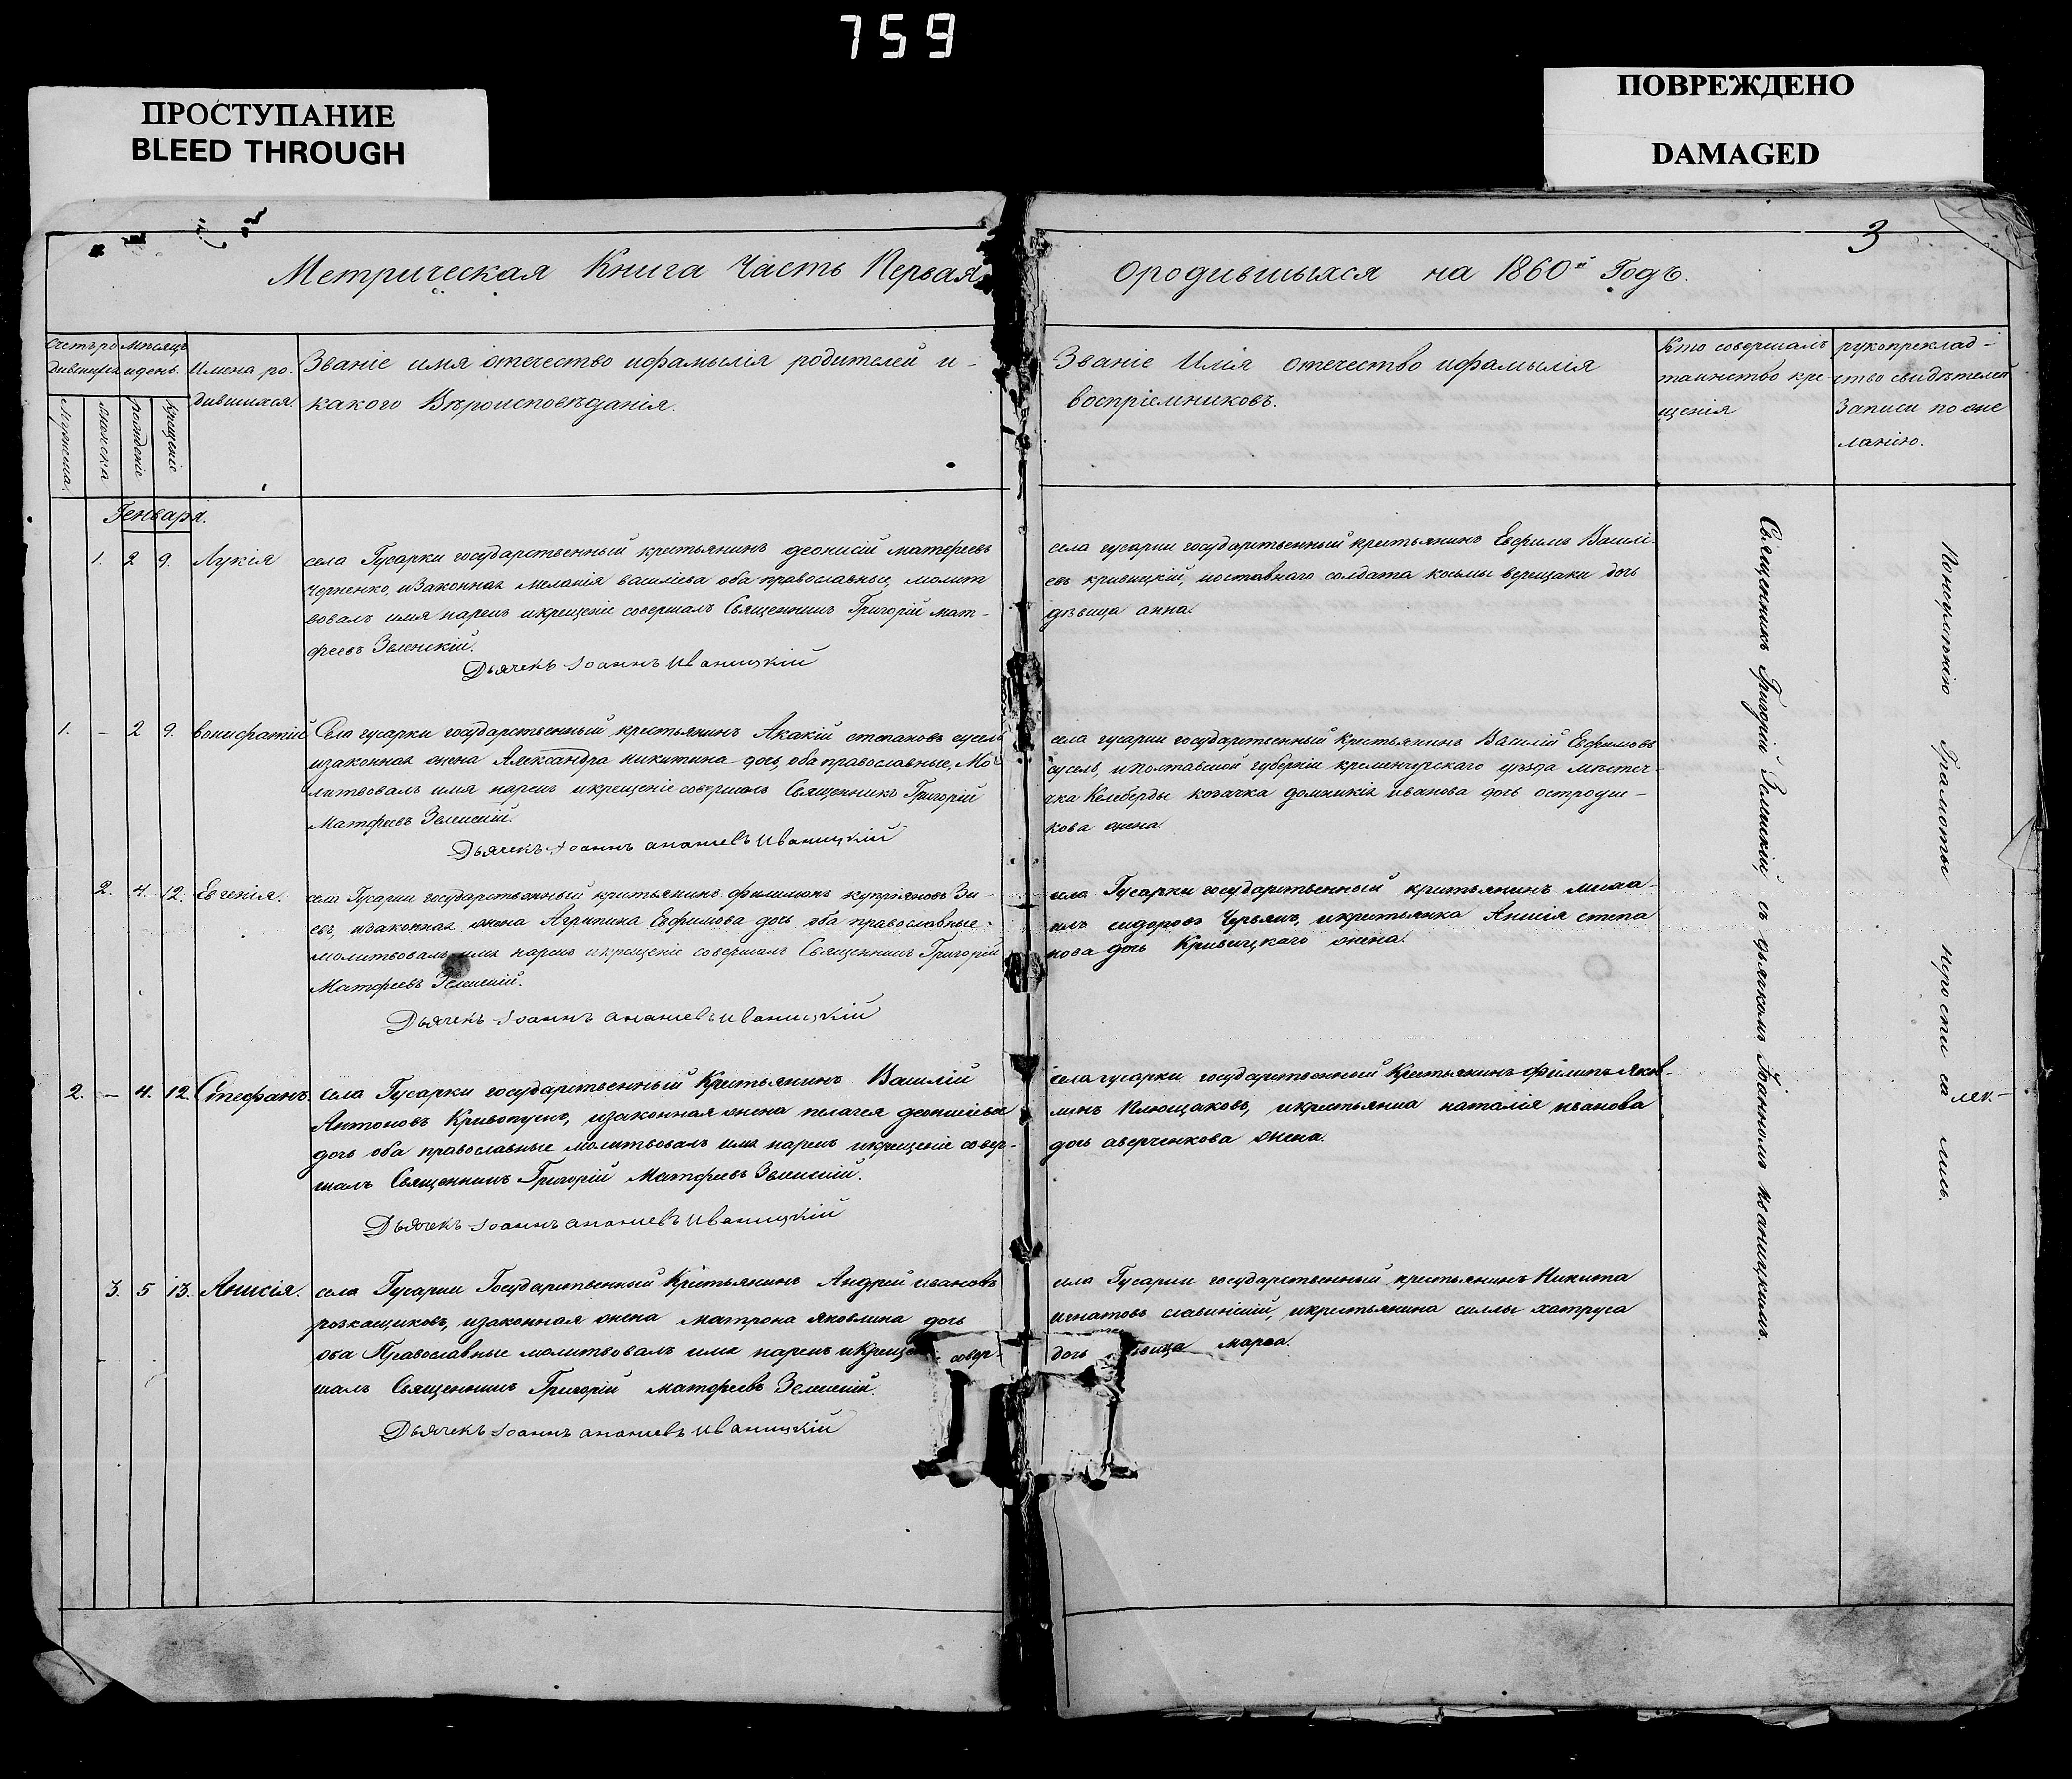 759
ПРОСТУПАНИЕ
BLEED THROUGH
ПОВРЕЖДЕНО
DAMAGED
3
Метрическая Книга Часть Первая
ородившыхся на 1860й Годъ.
Счетъ ро
дившихся
Мужеска.
женска
Мѣсяцъ
и день.
рожденіе
Крещеніе
Имена ро-
дившихся.
Званіе имя отечество ифамылія родителей и-
какого Вѣроисповѣданія.
Званіе Имя отечество ифамылія
воспріемниковъ.
Кто совершалъ
таинство кре-
щенія
рукопреклад-
ство свидѣтелей
Записи по же
ланію.
Генваря.
1. 2 9. Лукія
села Гусарки государственный крестьянинъ деонисій матфеевъ
Черненко, изаконная меланія василіева оба православные, молит
вовалъ имя нарекъ икрещеніе совершалъ Священникъ Григорій Мат-
феевъ Зеленскій.
Дьячекъ Іоаннъ Иваницкій
села гусарки государственный крестьянинъ Евфимъ Василі-
евъ кривицкій, иотставнаго солдата косьмы верещаки дочь
дѣвица анна.
1. - 2 9. вонифатій
Села гусарки государственный крестьянинъ Акакій степановъ сусель
изаконная жена Александра никитина дочь, оба православные, Мо-
литвовалъ имя нарекъ икрещеніе совершалъ Священникъ Григорій
Матфеевъ Зеленскій.
Дьячекъ Іоаннъ ананіевъ Иваницкій
села гусарки государственный Крестьянинъ Василій Евфимовъ
сусель, иполтавской губерніи кременчугскаго уѣзда мѣстеч-
чка Келеберды козачка домникія иванова дочь
кова жена.
2. 4. 12. Евгенія.
села Гусарки государственный крстьянинъ филимонъ купріяновъ Зи-
евъ, изаконная жена Агрипина Евфимова дочь оба православные.
молитвовалъ имя нарекъ икрещеніе совершалъ Священникъ Григорій
Матфеевъ Зеленскій.
Дьячекъ Іоаннъ ананіевъ Иваницкій
села Гусарки государственный кристьянинъ миха-
илъ сидоровъ икрстьянка Анисія степа
нова дочь Кривицкаго жена.
2. - 4. 12. Стефанъ.
села Гусарки государственный Кристьянинъ Василій
Антоновъ Кривопускъ, изаконная жена пелагея деонисіева
дочь оба православные молитвовалъ имя нарекъ икрещеніе совер-
шалъ Священникъ Григорій Матфеевъ Зеленскій.
Дьячекъ Іоаннъ ананіевъ Иваницкій
села гусарки государственный Крестьянинъ Филипъ Яков-
линъ Плющаковъ, икрестьянка наталія иванова
дочь аверченкова жена.
3. 5 13. Анисія.
села Гусарки Государственный Крстьянинъ Андрей ивановъ
розкащиковъ, изаконная жена матрона яковлина дочь
оба Православные молитвовалъ имя нарекъ икреще совер-
шалъ Священникъ Григорій матфеевъ Зеленскій.
Дьячекъ Іоаннъ ананіевъ Иваницкій
села Гусарки государственный крестьянинъ Никита
игнатовъ славинскій, икрестьянина силлы хатруса
дочь вица марѳа.
Священникъ Григорій Зеленскій, съ дьячкомъ Іоанномъ Иваницкимъ.
Понеумѣнію Грамоты неросписалися.